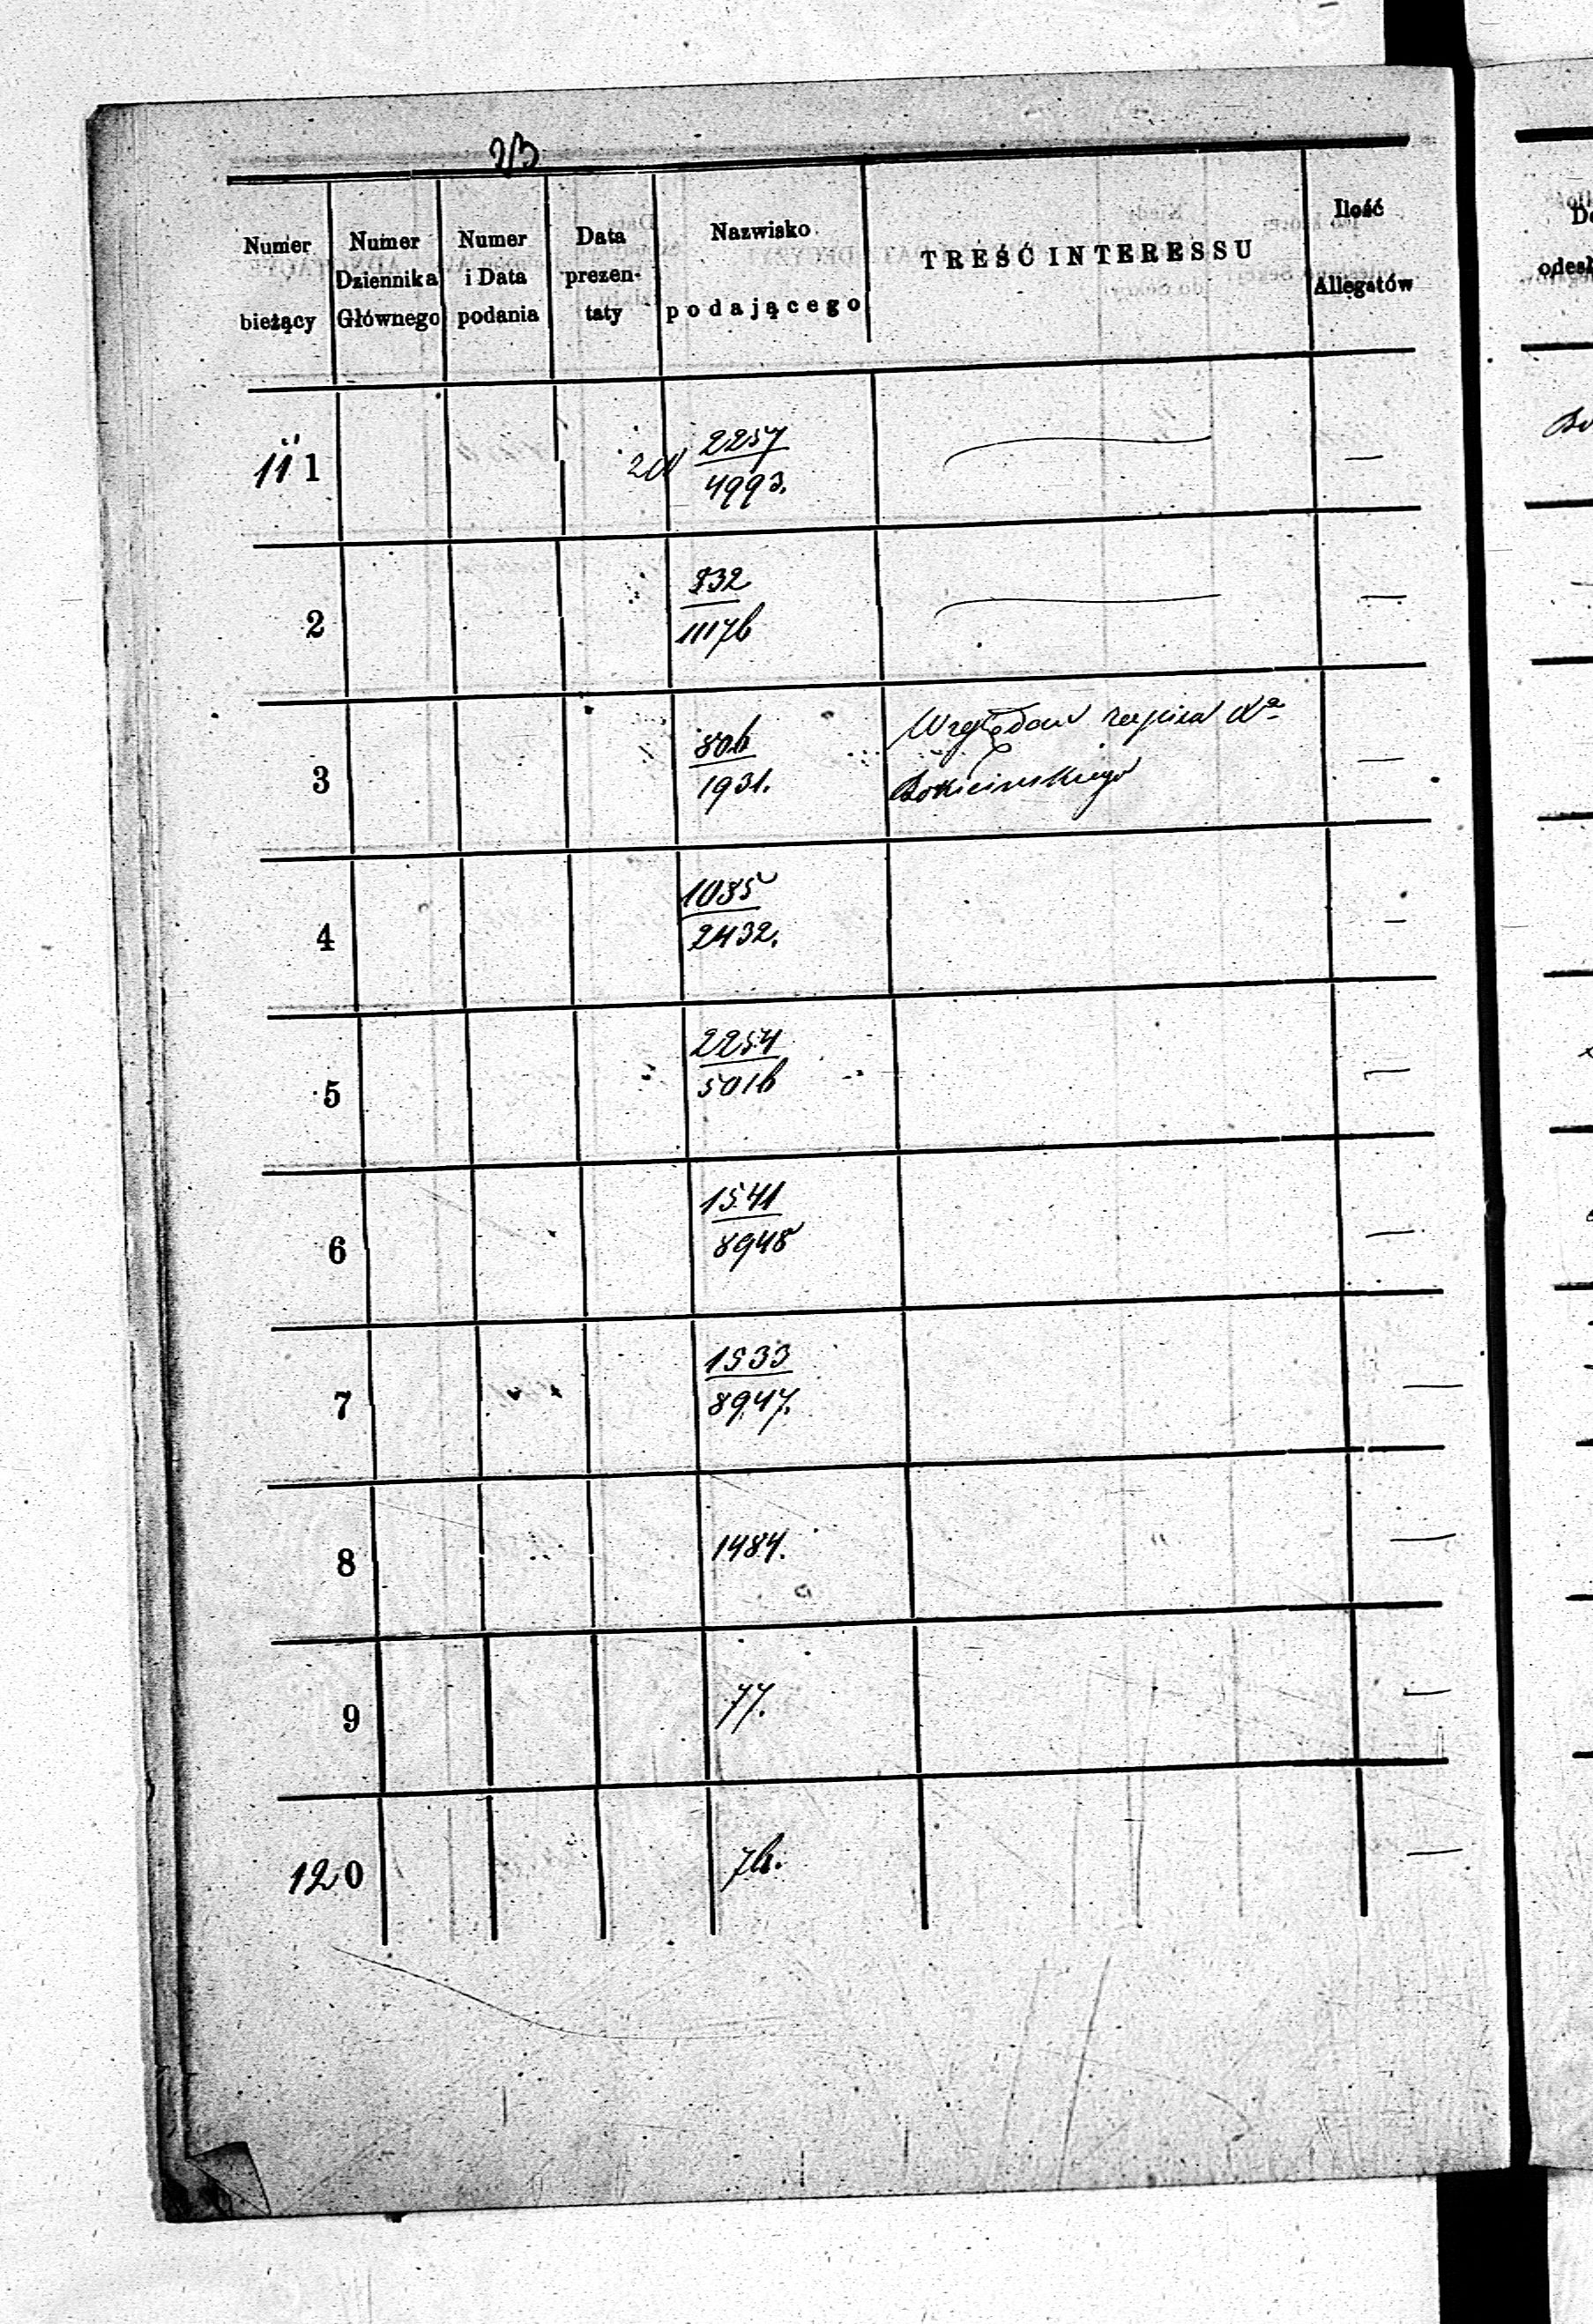 2/3
Numer bieżący
Numer Dziennika Głównego
Numer i Data podania
Data prezen- taty
Nazwisko podającego
TREŚĆ INTERESSU
Ilość Allegatów
111
2257
4993.
—
2
832
11176
—
3
806
1931.
—
4
1035
2432.
—
5
2254
5016
—
6
1541
8945
—
7
1533
8947.
—
8
1484.
—
9
77.
—
120
76.
—